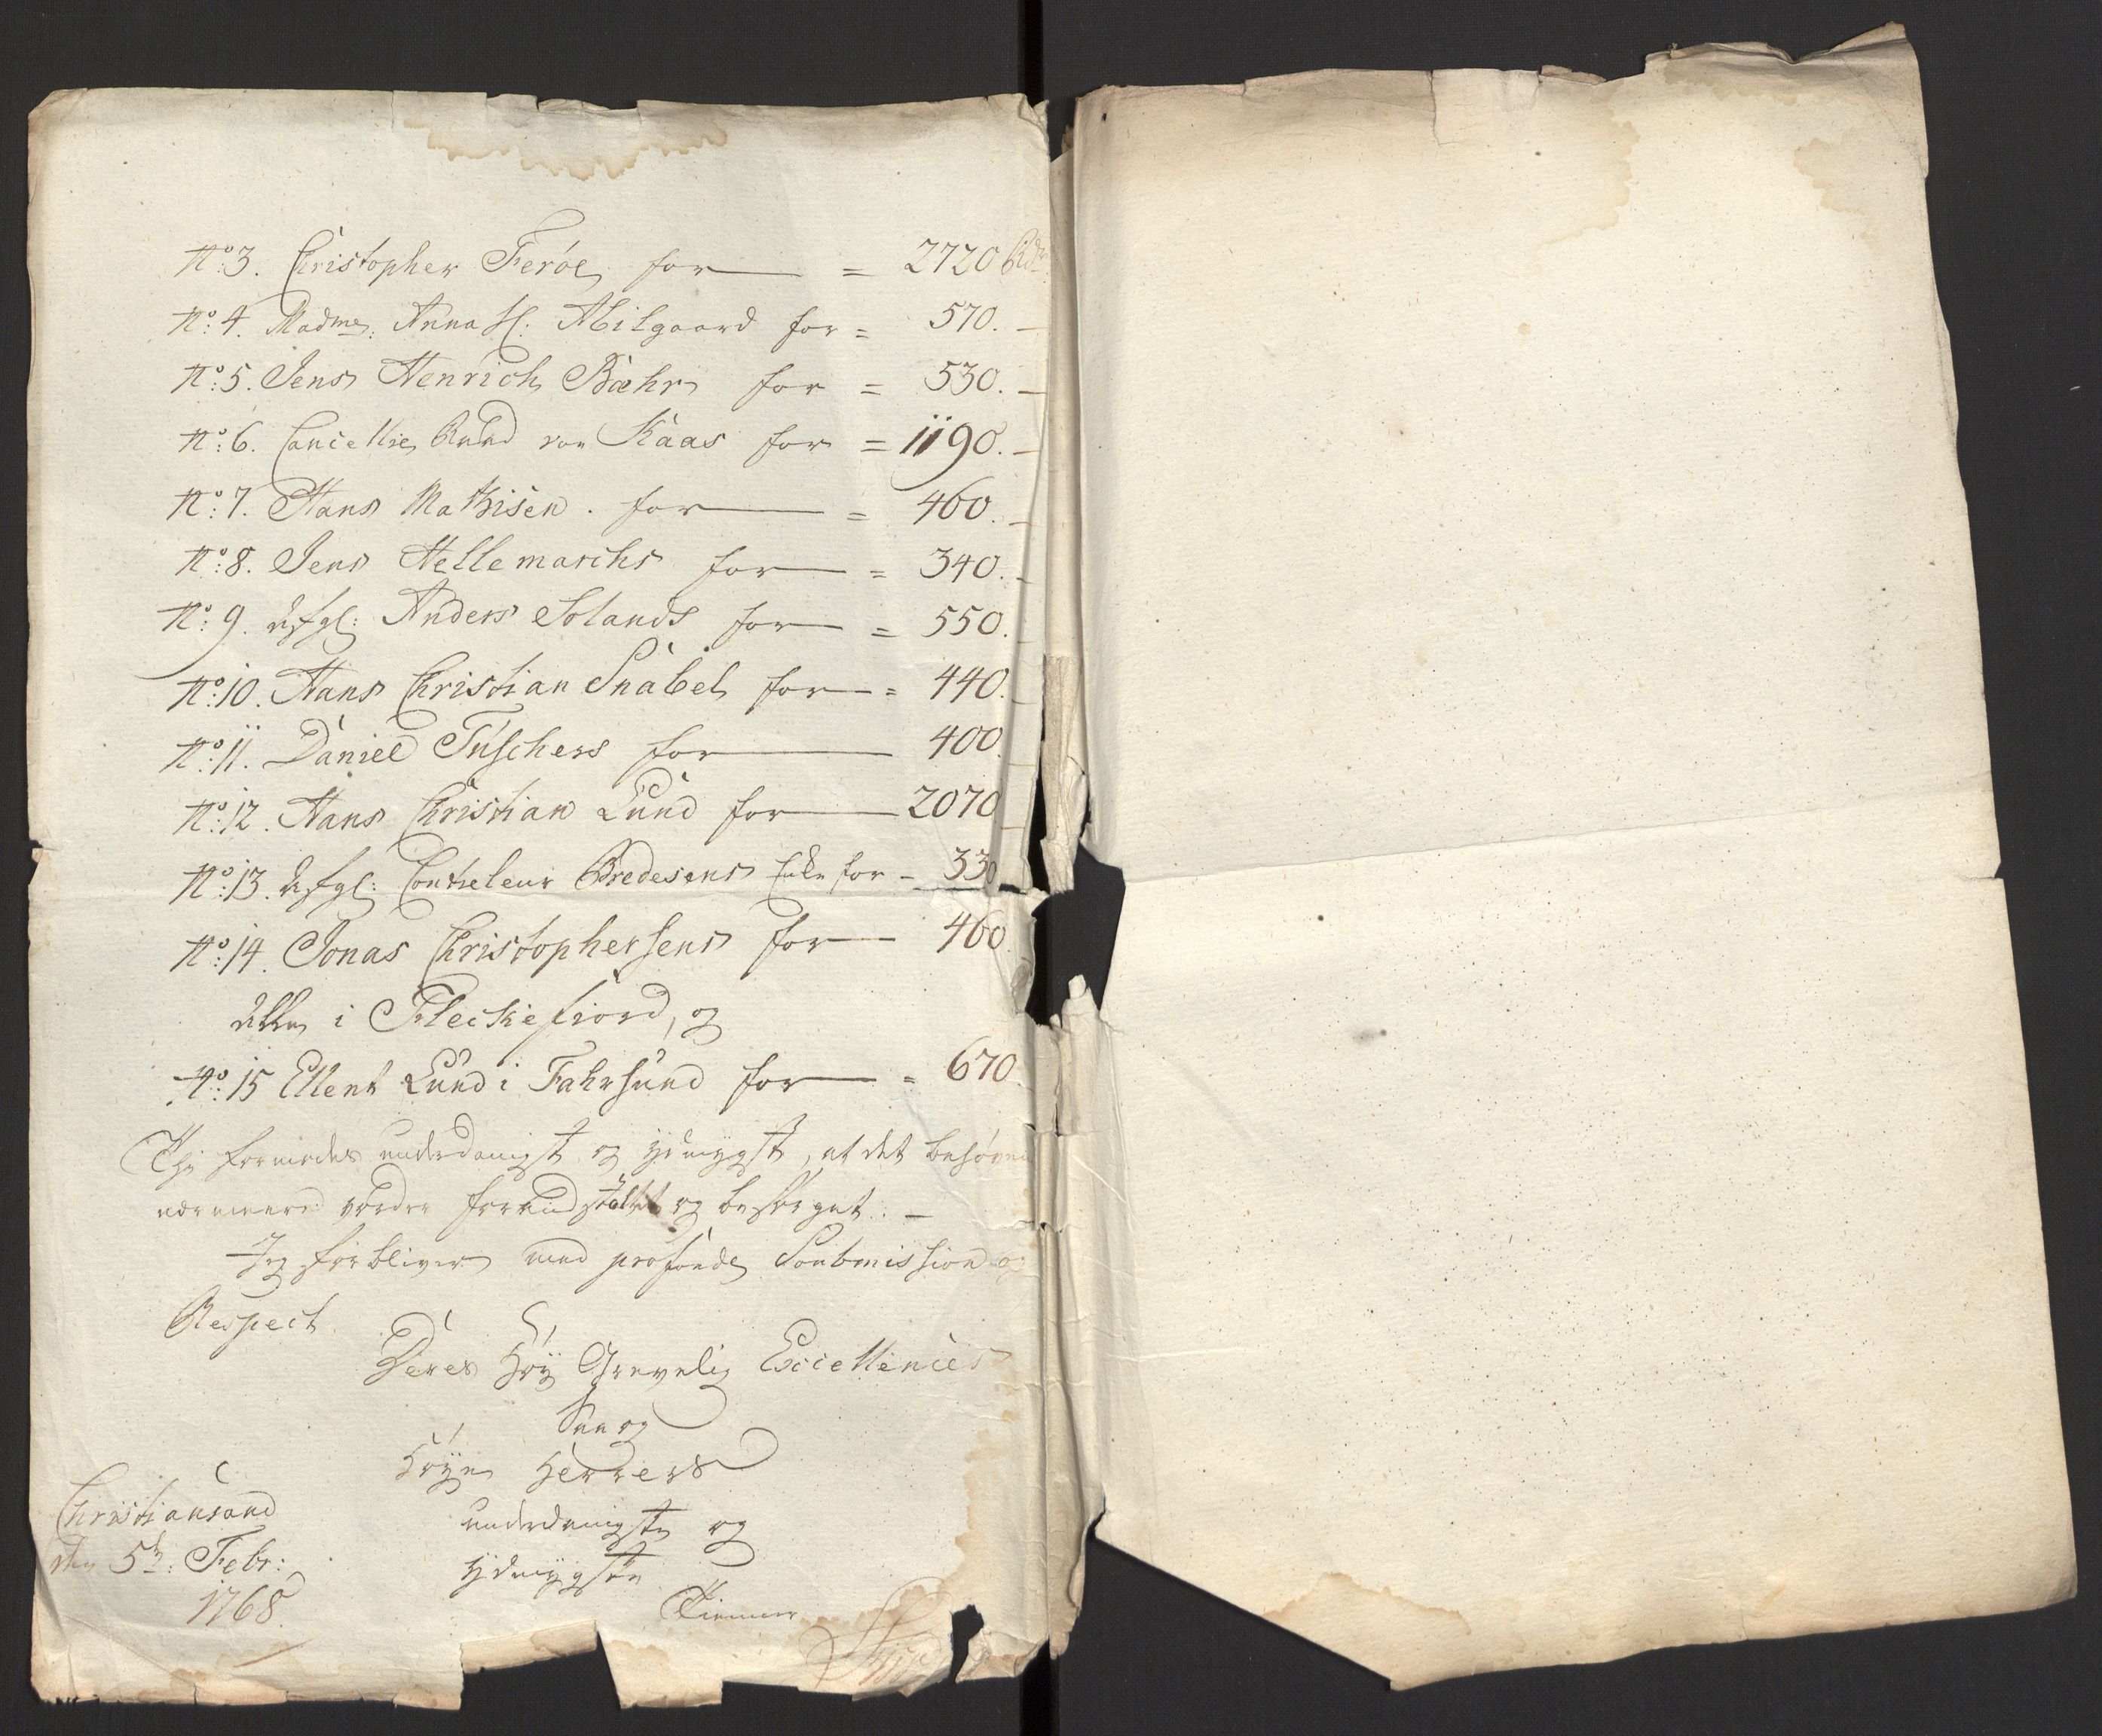 No: 3. Christopher Feröe for = 2720 Rdr
No: 4. Madme: Anna Sl: Abilgaard for = 570. –
No: 5. Jens Henrich Bæhr for = 530. –
No: 6. Cancellie Raad von Kaas for = 1190. –
No: 7. Hans Mathisen. for = 460. –
No: 8. Jens Hellemarchs for = 340. –
No: 9. desfgl: Anders Solands for = 550.
No: 10. Hans Christian Snabel for = 440.
No: 11. Daniel Tüschers for 400.
No: 12. Hans Christian Lund for 2070
No: 13. desfgl: Controleur Bredesens Enke for – 330
No: 14. Jonas Christophersens for 460.
alle i Fleckefiord, og
No: 15 Ellent Lund i Fahrsund for = 670.
Thj formodes underdanigst og ydmygst, at det behövende
nærmere vorder foranstaltet og besörget. –
Jeg forbliver med profonde Soubmission og
Respect
Deres Höy Grevelig Excellences
Höye Herrers
underdanigste og
ydmygste
Tienner
Christiansand
den 5te: Febr:
1768.